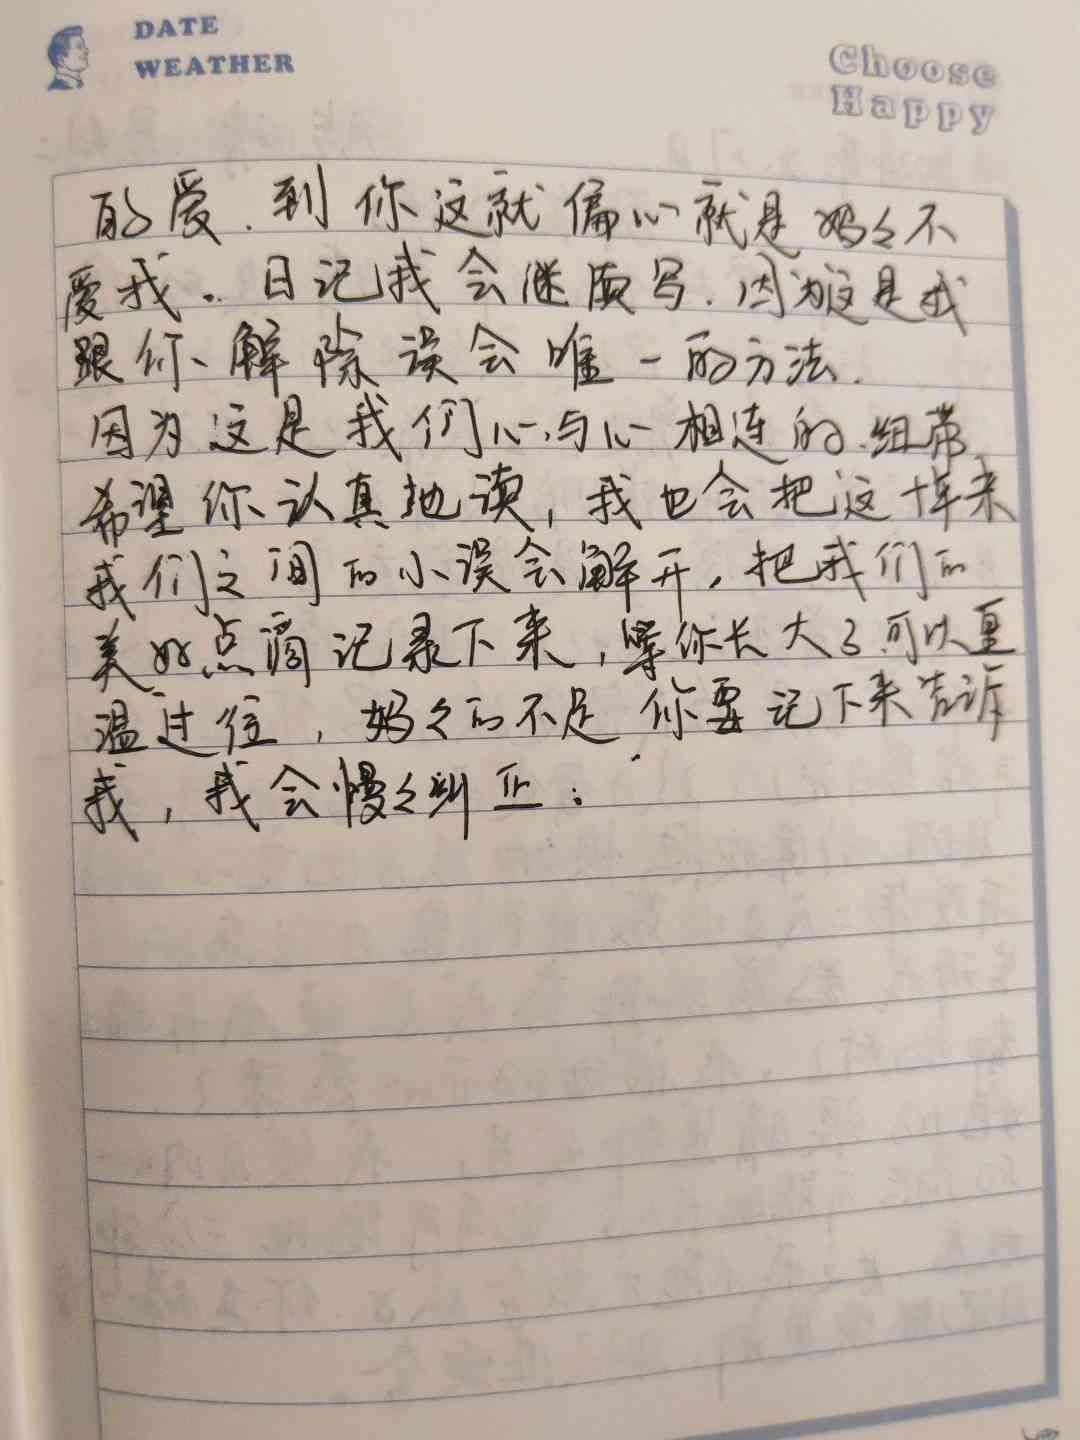 DATE
WEATHER
Choose
Happy
的爱.到你这就偏心就是妈々不
爱我。日记我会继续写.因为这是我
跟你、解除误会唯一的方法.
因为这是我们心与心相连的.纽带
希望你认真地读,我也会把这样来
我们之间的小误会解开,把我们的
美好点滴记录下来,等你长大了可以重
温过往,妈々的不足.你要记下来告诉
我,我会慢々纠正: